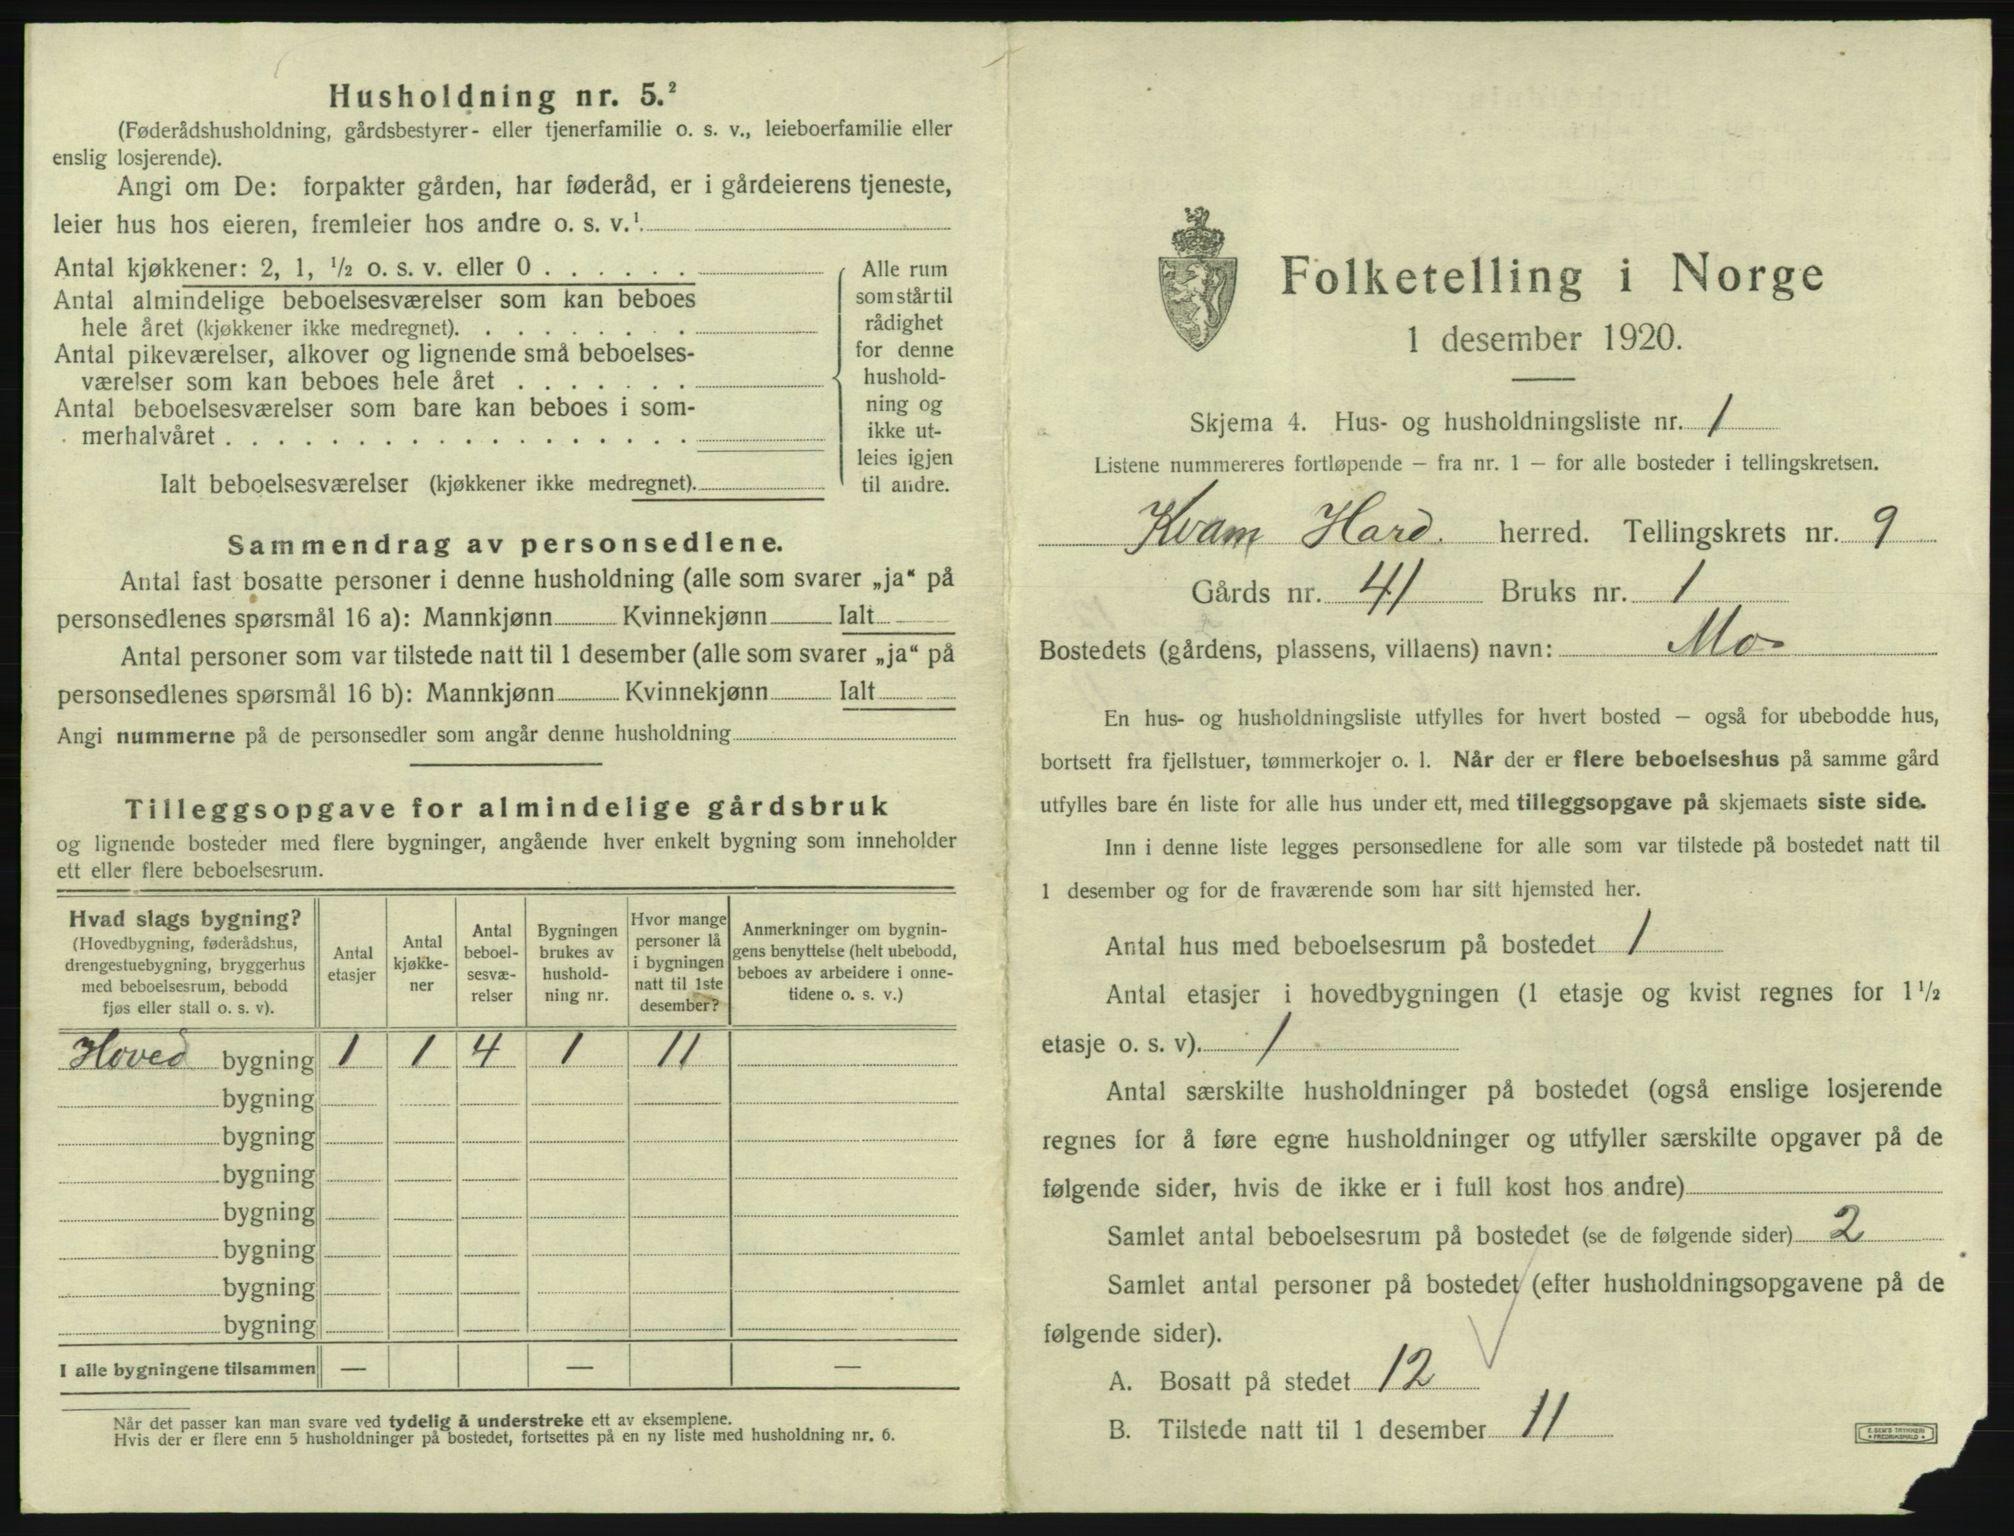 Husholdning nr. 5.²
(Føderådshusholdning, gårdsbestyrer- eller tjenerfamilie o. s. v., leieboerfamilie eller
enslig losjerende).
Angi om De: forpakter gården, har føderåd, er i gårdeierens tjeneste,
leier hus hos eieren, fremleier hos andre o. s. v.¹
Antal kjøkkener: 2, 1, ½ o. s. v. eller 0
Antal almindelige beboelsesværelser som kan beboes
hele året (kjøkkener ikke medregnet).
Antal pikeværelser, alkover og lignende små beboelses-
værelser som kan beboes hele året
Antal beboelsesværelser som bare kan beboes i som-
merhalvåret
Ialt beboelsesværelser (kjøkkener ikke medregnet).
Alle rum
som står til
rådighet
for denne
hushold-
ning og
ikke ut-
leies igjen
til andre.
Sammendrag av personsedlene.
Antal fast bosatte personer i denne husholdning (alle som svarer „ja“ på
personsedlenes spørsmål 16 a): Mannkjønn Kvinnekjønn Ialt
Antal personer som var tilstede natt til 1 desember (alle som svarer „ja“ på
personsedlenes spørsmål 16 b): Mannkjønn Kvinnekjønn Ialt
Angi nummerne på de personsedler som angår denne husholdning
Tilleggsopgave for almindelige gårdsbruk
og lignende bosteder med flere bygninger, angående hver enkelt bygning som inneholder
ett eller flere beboelsesrum.
Hvad slags bygning?
(Hovedbygning, føderådshus,
drengestuebygning, bryggerhus
med beboelsesrum, bebodd
fjøs eller stall o. s. v).
Antal
etasjer
Antal
kjøkke-
ner
Antal
beboel-
sesvæ-
relser
Bygningen
brukes av
hushold-
ning nr.
Hvor mange
personer lå
i bygningen
natt til 1ste
desember?
Anmerkninger om bygnin-
gens benyttelse (helt ubebodd,
beboes av arbeidere i onne-
tidene o. s. v.)
Hoved bygning 1 1 4 1 11
bygning
bygning
bygning
bygning
bygning
bygning
bygning
I alle bygningene tilsammen — — —
Når det passer kan man svare ved tydelig å understreke ett av eksemplene.
Hvis der er flere enn 5 husholdninger på bostedet, fortsettes på en ny liste med husholdning nr. 6.
Folketelling i Norge
1 desember 1920.
Skjema 4. Hus- og husholdningsliste nr. 1
Listene nummereres fortløpende — fra nr. 1 — for alle bosteder i tellingskretsen.
Kvam Hard. herred. Tellingskrets nr. 9
Gårds nr. 41 Bruks nr. 1
Bostedets (gårdens, plassens, villaens) navn: Mo
En hus- og husholdningsliste utfylles for hvert bosted — også for ubebodde hus,
bortsett fra fjellstuer, tømmerkojer o. l. Når der er flere beboelseshus på samme gård
utfylles bare én liste for alle hus under ett, med tilleggsopgave på skjemaets siste side.
Inn i denne liste legges personsedlene for alle som var tilstede på bostedet natt til
1 desember og for de fraværende som har sitt hjemsted her.
Antal hus med beboelsesrum på bostedet 1
Antal etasjer i hovedbygningen (1 etasje og kvist regnes for 1½
etasje o. s. v). 1
Antal særskilte husholdninger på bostedet (også enslige losjerende
regnes for å føre egne husholdninger og utfyller særskilte opgaver på de
følgende sider, hvis de ikke er i full kost hos andre)
Samlet antal beboelsesrum på bostedet (se de følgende sider) 2
Samlet antal personer på bostedet (efter husholdningsopgavene på de
følgende sider).
A. Bosatt på stedet 12
B. Tilstede natt til 1 desember 11
E. SEM'S TRYKKERI
FREDRIKSHALD